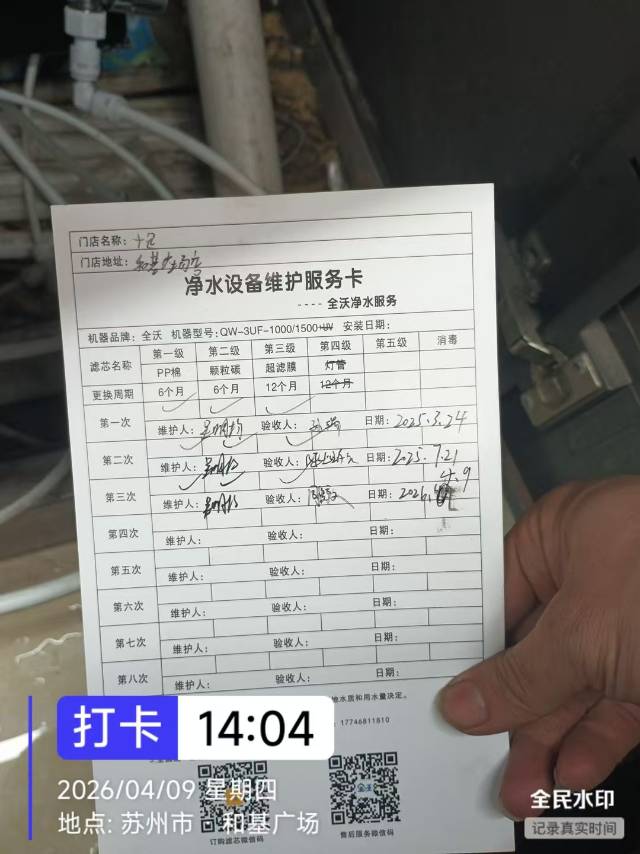 门店名称：
门店地址：和基广场店
净水设备维护服务卡
---- 全沃净水服务
机器品牌：全沃 机器型号：QW-3UF-1000/1500+UV 安装日期：
滤芯名称 第一级 第二级 第三级 第四级 第五级 消毒
PP棉 颗粒碳 超滤膜 灯管
更换周期 6个月 6个月 12个月 12个月
第一次
维护人： 验收人： 日期：2025.3.24
第二次
维护人： 验收人： 日期：2025.7.21
第三次
维护人： 验收人： 日期：2026.4.9
第四次
维护人： 验收人： 日期：
第五次
维护人： 验收人： 日期：
第六次
维护人： 验收人： 日期：
第七次
维护人： 验收人： 日期：
第八次
维护人： 验收人： 日期：
地水质和用水量决定。
17746811810
订购滤芯微信码
售后服务微信码
打卡 14:04
2026/04/09 星期四
地点：苏州市 · 和基广场
全民水印
记录真实时间